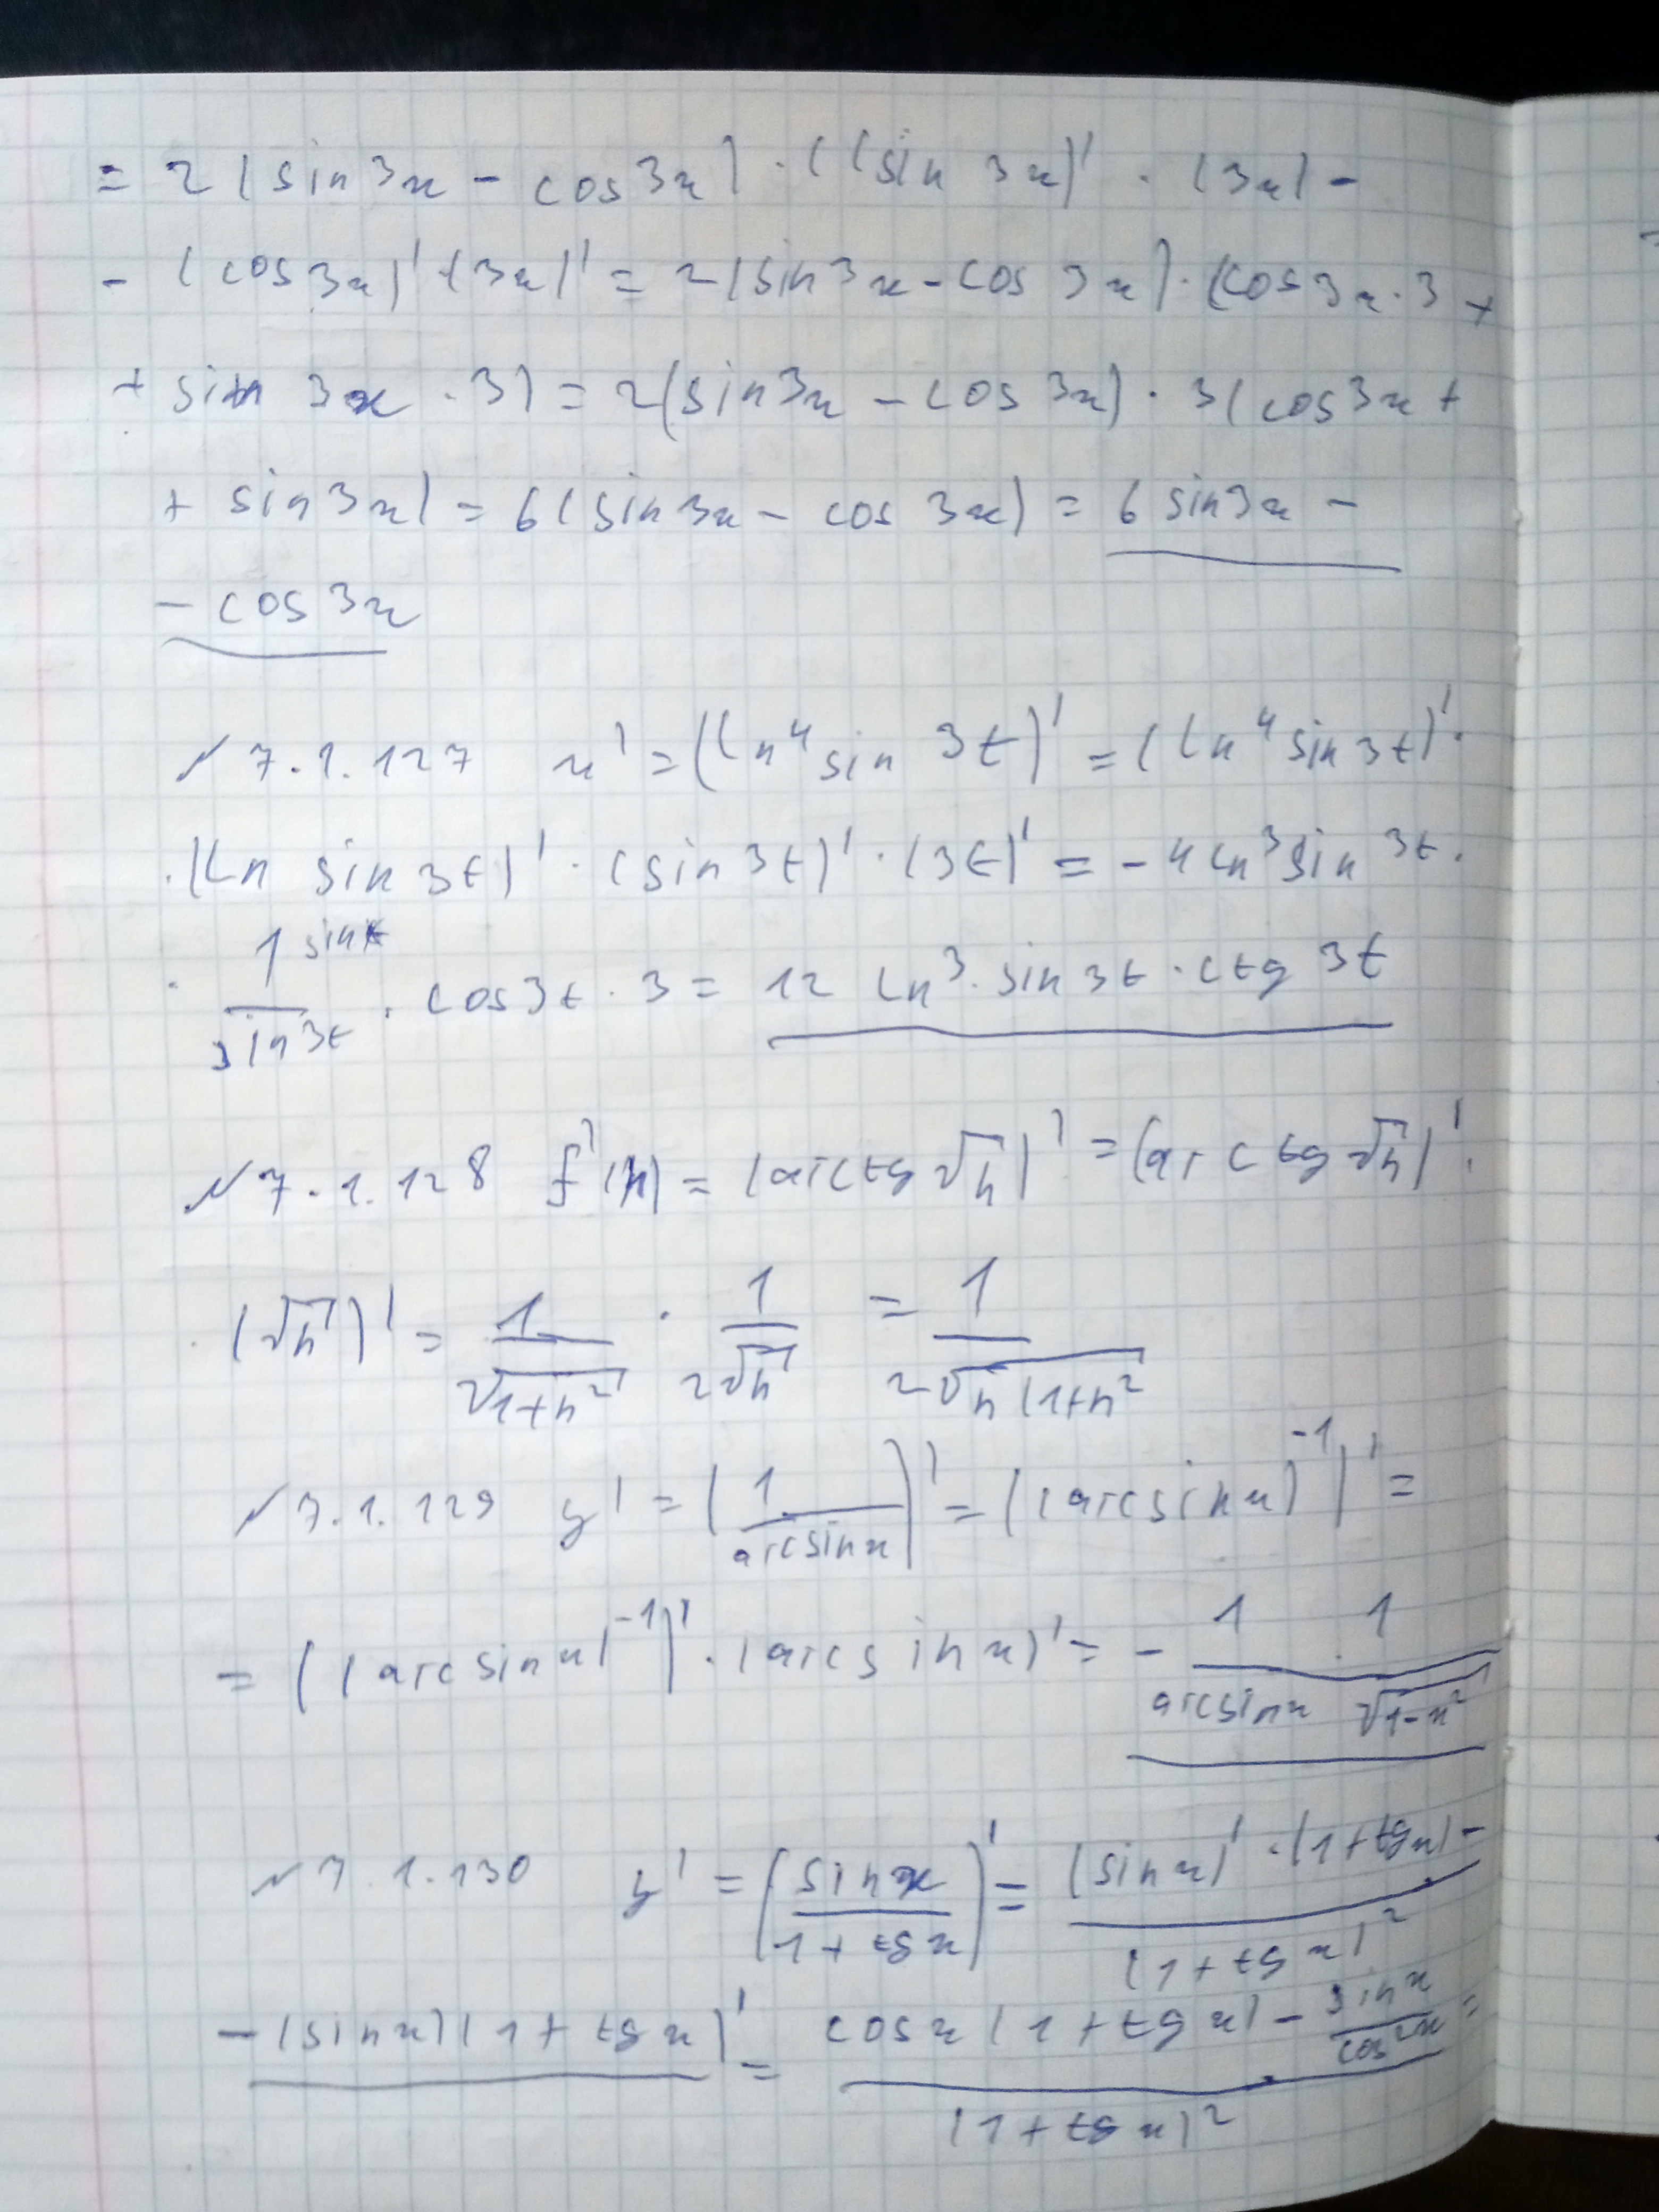 = 2(sin 3x - cos 3x) · ((sin 3x)' · (3x) -
- (cos 3x)' · (3x)' = 2(sin 3x - cos 3x) · (cos 3x · 3 +
+ sin 3x · 3) = 2(sin 3x - cos 3x) · 3(cos 3x +
+ sin 3x) = 6(sin 3x - cos 3x) = 6 sin 3x -
- cos 3x
N 7.1.127 x' = (ln⁴ sin 3t)' = (ln⁴ sin 3t)' ·
· (ln sin 3t)' · (sin 3t)' · (3t)' = - 4 ln³ sin 3t ·
· 1/sin 3t · cos 3t · 3 = 12 ln³ · sin 3t · ctg 3t
N 7.1.128 f'(h) = (arctg √h)' = (arctg √h)' ·
· (√h)' = 1/√(1+h²) · 1/(2√h) = 1/(2√(h(1+h²
N 7.1.129 y' = (1/arcsin x)' = ((arcsin x)⁻¹)' =
= ((arcsin x)⁻¹)' · (arcsin x)' = - 1/arcsin x · 1/√(1-x²)
N 7.1.130 y' = (sin x/(1 + tg x))' = (sin x)' · (1 + tg x) - / (1 + tg x)²
- (sin x)(1 + tg x)' = cos x (1 + tg x) - sin x/cos² x / (1 + tg x)² =